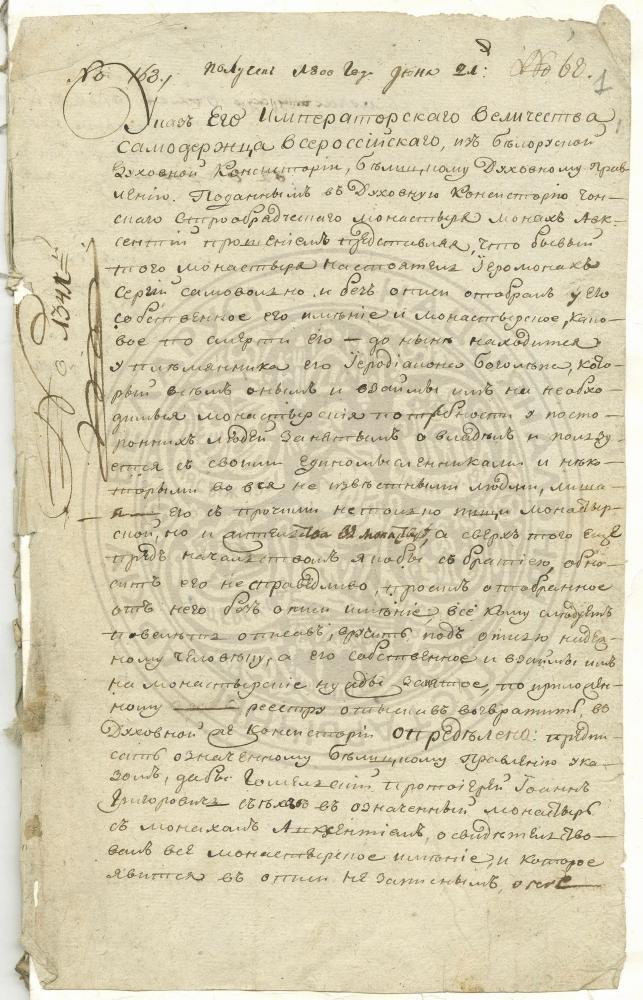 № 163. Получен 1800 году июня 21: № 62. 1
Указъ Его Императорскаго Величества
Самодержца Всероссійскаго, изъ бѣлорусской
Духовной Консисторіи, бѣлицкому Духовному Прав-
ленію. Поданнымъ въ Духовную Консисторію Чон-
скаго Старообрядческаго монастыря монахъ Авк-
сентій прошеніемъ представляя, что бывый
того монастыря настоятель Іеромонахъ
Сергій самовольно и безъ описи отобралъ у его
собственное его имѣніе и монастырское, како-
вое по смерти его — до нынѣ находится
у племянника его Іеродіакона Боголѣпа, кото-
рый всѣмъ онымъ и взаймы имъ на необхо-
димыя монастырскія потребности у посто-
роннихъ людей занятымъ овладѣлъ и пользу-
ется съ своими единомысленниками и нѣко-
торыми вовся не извѣстными людми, лиша-
я его съ прочими не токмо пищи монастыр-
ской, но и, а сверхъ того еще
предъ начальствомъ якобы съ братіею, обно-
ситъ его несправедливо, просилъ отобранное
отъ него безъ описи имѣніе, все кому слѣдуетъ
повелѣть описавъ, вручить подъ опись надеж-
ному человѣку, а его собственное и взаймы имъ
на монастырскіе нужды занятое, по приложен-
ному реестру отыскавъ возвратить, въ
Духовной же Консисторіи опредѣлено: предпи-
сать означенному бѣлицкому Правленію ука-
зомъ, дабы Гомельскій протоіерей Іоаннъ
Григоровичъ съѣхавъ въ означенный монастырь
съ монахомъ Авксентіемъ, освидѣтельство-
валъ все монастырское имѣніе, и которое
явится въ описи не записнымъ, оное
№ 1341